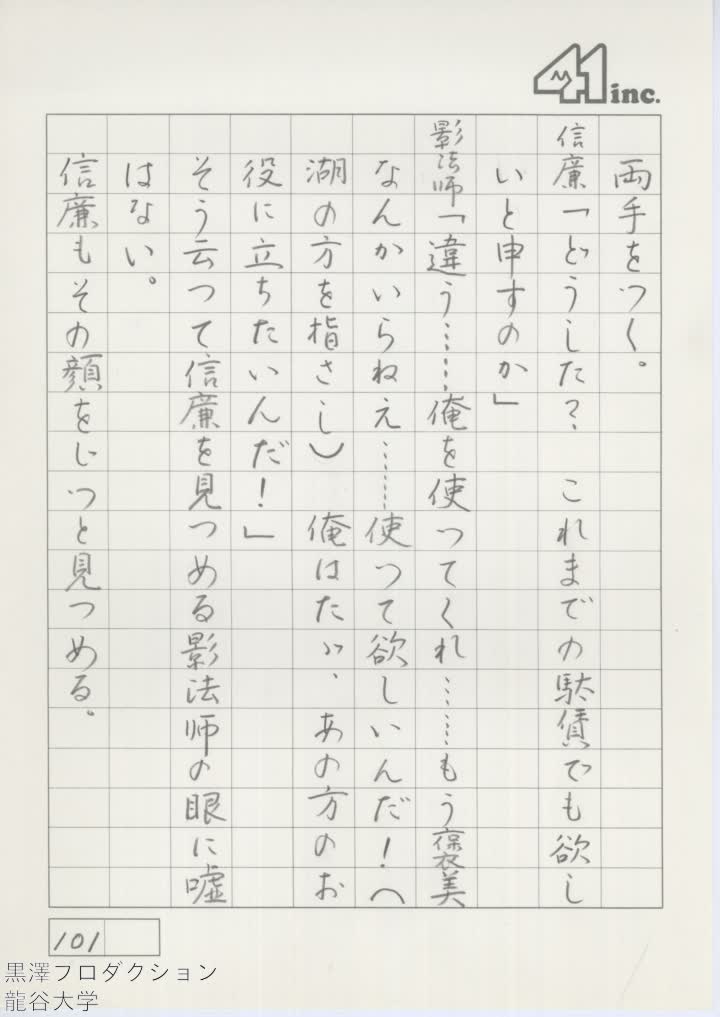 41 inc.
両手をつく。
信廉「どうした？　これまでの駄賃でも欲し
いと申すのか」
影法師「違う……俺を使ってくれ……もう褒美
なんかいらねえ……使って欲しいんだ！（
湖の方を指さし）　俺はたゞ、あの方のお
役に立ちたいんだ！」
そう云って信廉を見つめる影法師の眼に嘘
はない。
信廉もその顔をじっと見つめる。
101
黒澤フロダクション
龍谷大学